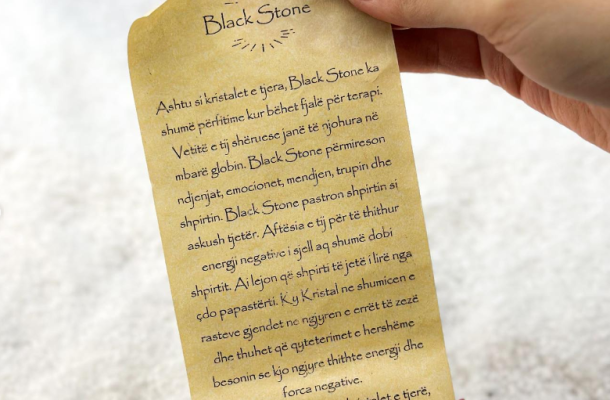 Black Stone
Ashtu si kristalet e tjera, Black Stone ka
shumë përfitime kur bëhet fjalë për terapi.
Vetitë e tij shëruese janë të njohura në
mbarë globin. Black Stone përmireson
ndjenjat, emocionet, mendjen, trupin dhe
shpirtin. Black Stone pastron shpirtin si
askush tjetër. Aftësia e tij për të thithur
energji negative i sjell aq shumë dobi
shpirtit. Ai lejon që shpirti të jetë i lirë nga
çdo papastërti. Ky Kristal ne shumicen e
rasteve gjendet ne ngjyren e errët të zezë
dhe thuhet që qyteterimet e hershëme
besonin se kjo ngjyre thithte energji dhe
forca negative.
kristalet e tjerë,